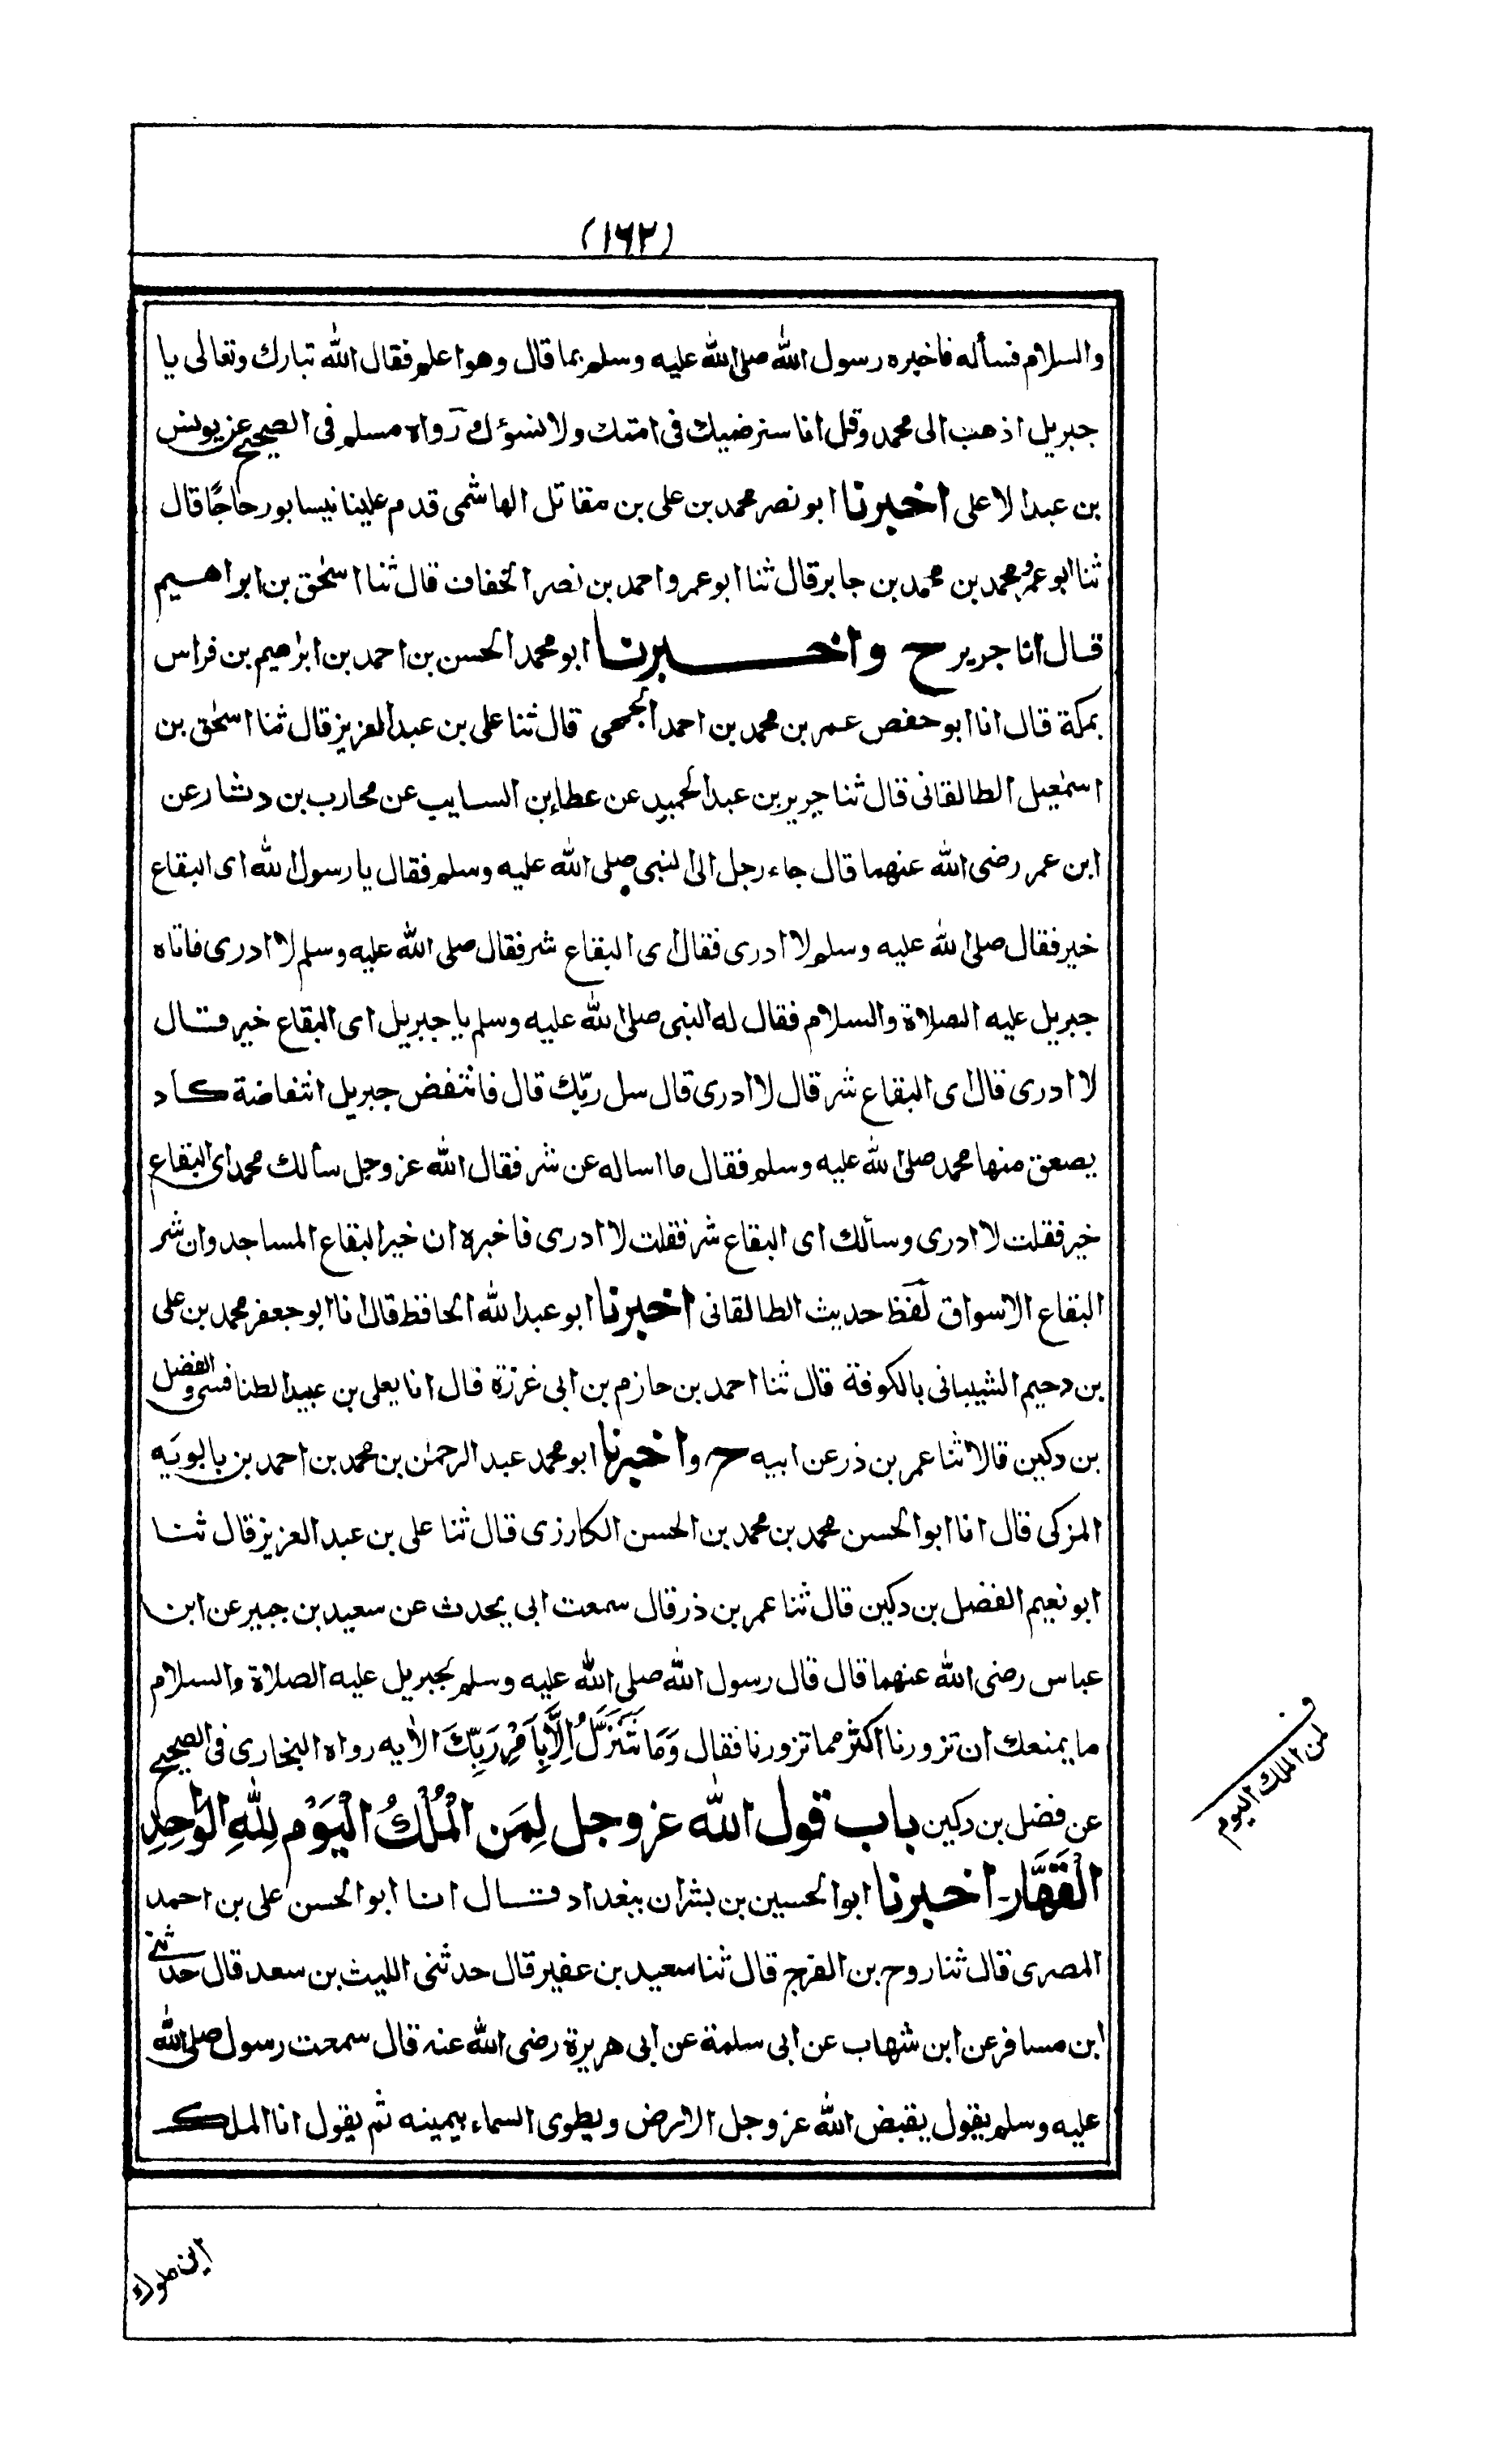 (١٦٢)
والسلام فسأله فاخبره رسول الله صلى الله عليه وسلم بما قال وهو اعلم فقال الله تبارك وتعالى يا
جبريل اذهب الى محمد وقل انا سنرضيك فى امتك ولا نسؤك رواه مسلم فى الصحيح عن يونس
بن عبد الاعلى اخبرنا ابو نصر محمد بن على بن مقاتل الهاشمى قدم علينا نيسابور حاجًا قال
ثنا ابو عمرو محمد بن محمد بن جابر قال ثنا ابو عمرو احمد بن نصر الخفاف قال ثنا اسحٰق بن ابراهيم
قال انا جرير ح واخبرنا ابو محمد الحسن بن احمد بن ابرٰهيم بن فراس
بمكة قال انا ابو حفص عمر بن محمد بن احمد الجمحى قال ثنا على بن عبد العزيز قال ثنا اسحٰق بن
اسمٰعيل الطالقانى قال ثنا جرير بن عبد الحميد عن عطاء بن السايب عن محارب بن دثار عن
ابن عمر رضى الله عنهما قال جاء رجل الى النبى صلى الله عليه وسلم فقال يا رسول الله اى البقاع
خير فقال صلى الله عليه وسلم لا ادرى فقال اى البقاع شر فقال صلى الله عليه وسلم لا ادرى فاتاه
جبريل عليه الصلاة والسلام فقال له النبى صلى الله عليه وسلم يا جبريل اى البقاع خير قال
لا ادرى قال اى البقاع شر قال لا ادرى قال سل ربّك قال فانتفض جبريل انتفاضة كاد
يصعق منها محمد صلى الله عليه وسلم فقال ما اساله عن شر فقال الله عز وجل سألك محمد اى البقاع
خير فقلت لا ادرى وسألك اى البقاع شر فقلت لا ادرى فاخبره ان خير البقاع المساجد وان شر
البقاع الاسواق لفظ حديث الطالقانى اخبرنا ابو عبد الله الحافظ قال انا ابو جعفر محمد بن على
بن دحيم الشيبانى بالكوفة قال ثنا احمد بن حازم بن ابى غرزة قال انا يعلى بن عبيد الطنافسى والفضل
بن دكين قالا ثنا عمر بن ذر عن ابيه ح واخبرنا ابو محمد عبد الرحمٰن بن محمد بن احمد بن بالويَه
المزكى قال انا ابو الحسن محمد بن محمد بن الحسن الكارزى قال ثنا على بن عبد العزيز قال ثنا
ابو نعيم الفضل بن دكين قال ثنا عمر بن ذر قال سمعت ابى يحدث عن سعيد بن جبير عن ابن
عباس رضى الله عنهما قال قال رسول الله صلى الله عليه وسلم لجبريل عليه الصلاة والسلام
ما يمنعك ان تزورنا اكثر مما تزورنا فقال وَمَا نَتَنَزَّلُ اِلَّا بِاَمْرِ رَبِّكَ الاٰيه رواه البخارى فى الصحيح
عن فضل بن دكين باب قول الله عز وجل لِمَن الْمُلْكُ الْيَوْم لِلّٰهِ الْوَاحِدِ
الْقَهَّار۔ اخبرنا ابو الحسين بن بشران ببغداد قال انا ابو الحسن على بن احمد
المصرى قال ثنا روح بن الفرج قال ثنا سعيد بن عفير قال حدثنى الليث بن سعد قال حدثنى
ابن مسافر عن ابن شهاب عن ابى سلمة عن ابى هريرة رضى الله عنه قال سمعت رسول صلى الله
عليه وسلم يقول يقبض الله عز وجل الارض ويطوى السماء بيمينه ثم يقول انا الملك
ف
لمن الملك اليوم
اين ملوك